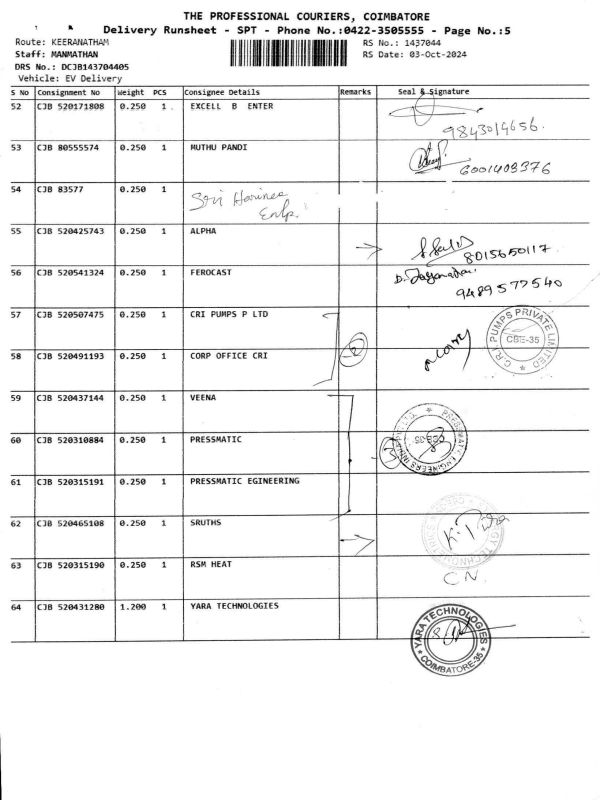 THE PROFESSIONAL COURIERS, COIMBATORE
Delivery Runsheet - SPT - Phone No.:0422-3505555 - Page No.:5
Route: KEERANATHAM RS No.: 1437044
Staff: MANMATHAN RS Date: 03-Oct-2024
DRS No.: DCJB143704405
Vehicle: EV Delivery
S No Consignment No Weight PCS Consignee Details Remarks Seal & Signature
52 CJB 520171808 0.250 1 EXCELL B ENTER
9843014656.
53 CJB 80555574 0.250 1 MUTHU PANDI
6001403376
54 CJB 83577 0.250 1 Sri Harines
Enlp.
55 CJB 520425743 0.250 1 ALPHA
8015650117
56 CJB 520541324 0.250 1 FEROCAST
9489577540
57 CJB 520507475 0.250 1 CRI PUMPS P LTD
C.R.I. PUMPS PRIVATE LIMITED
CBE-35
58 CJB 520491193 0.250 1 CORP OFFICE CRI
2
59 CJB 520437144 0.250 1 VEENA
60 CJB 520310884 0.250 1 PRESSMATIC
61 CJB 520315191 0.250 1 PRESSMATIC EGINEERING
62 CJB 520465108 0.250 1 SRUTHS
63 CJB 520315190 0.250 1 RSM HEAT
C.N.
64 CJB 520431280 1.200 1 YARA TECHNOLOGIES
YARA TECHNOLOGIES
COIMBATORE-35